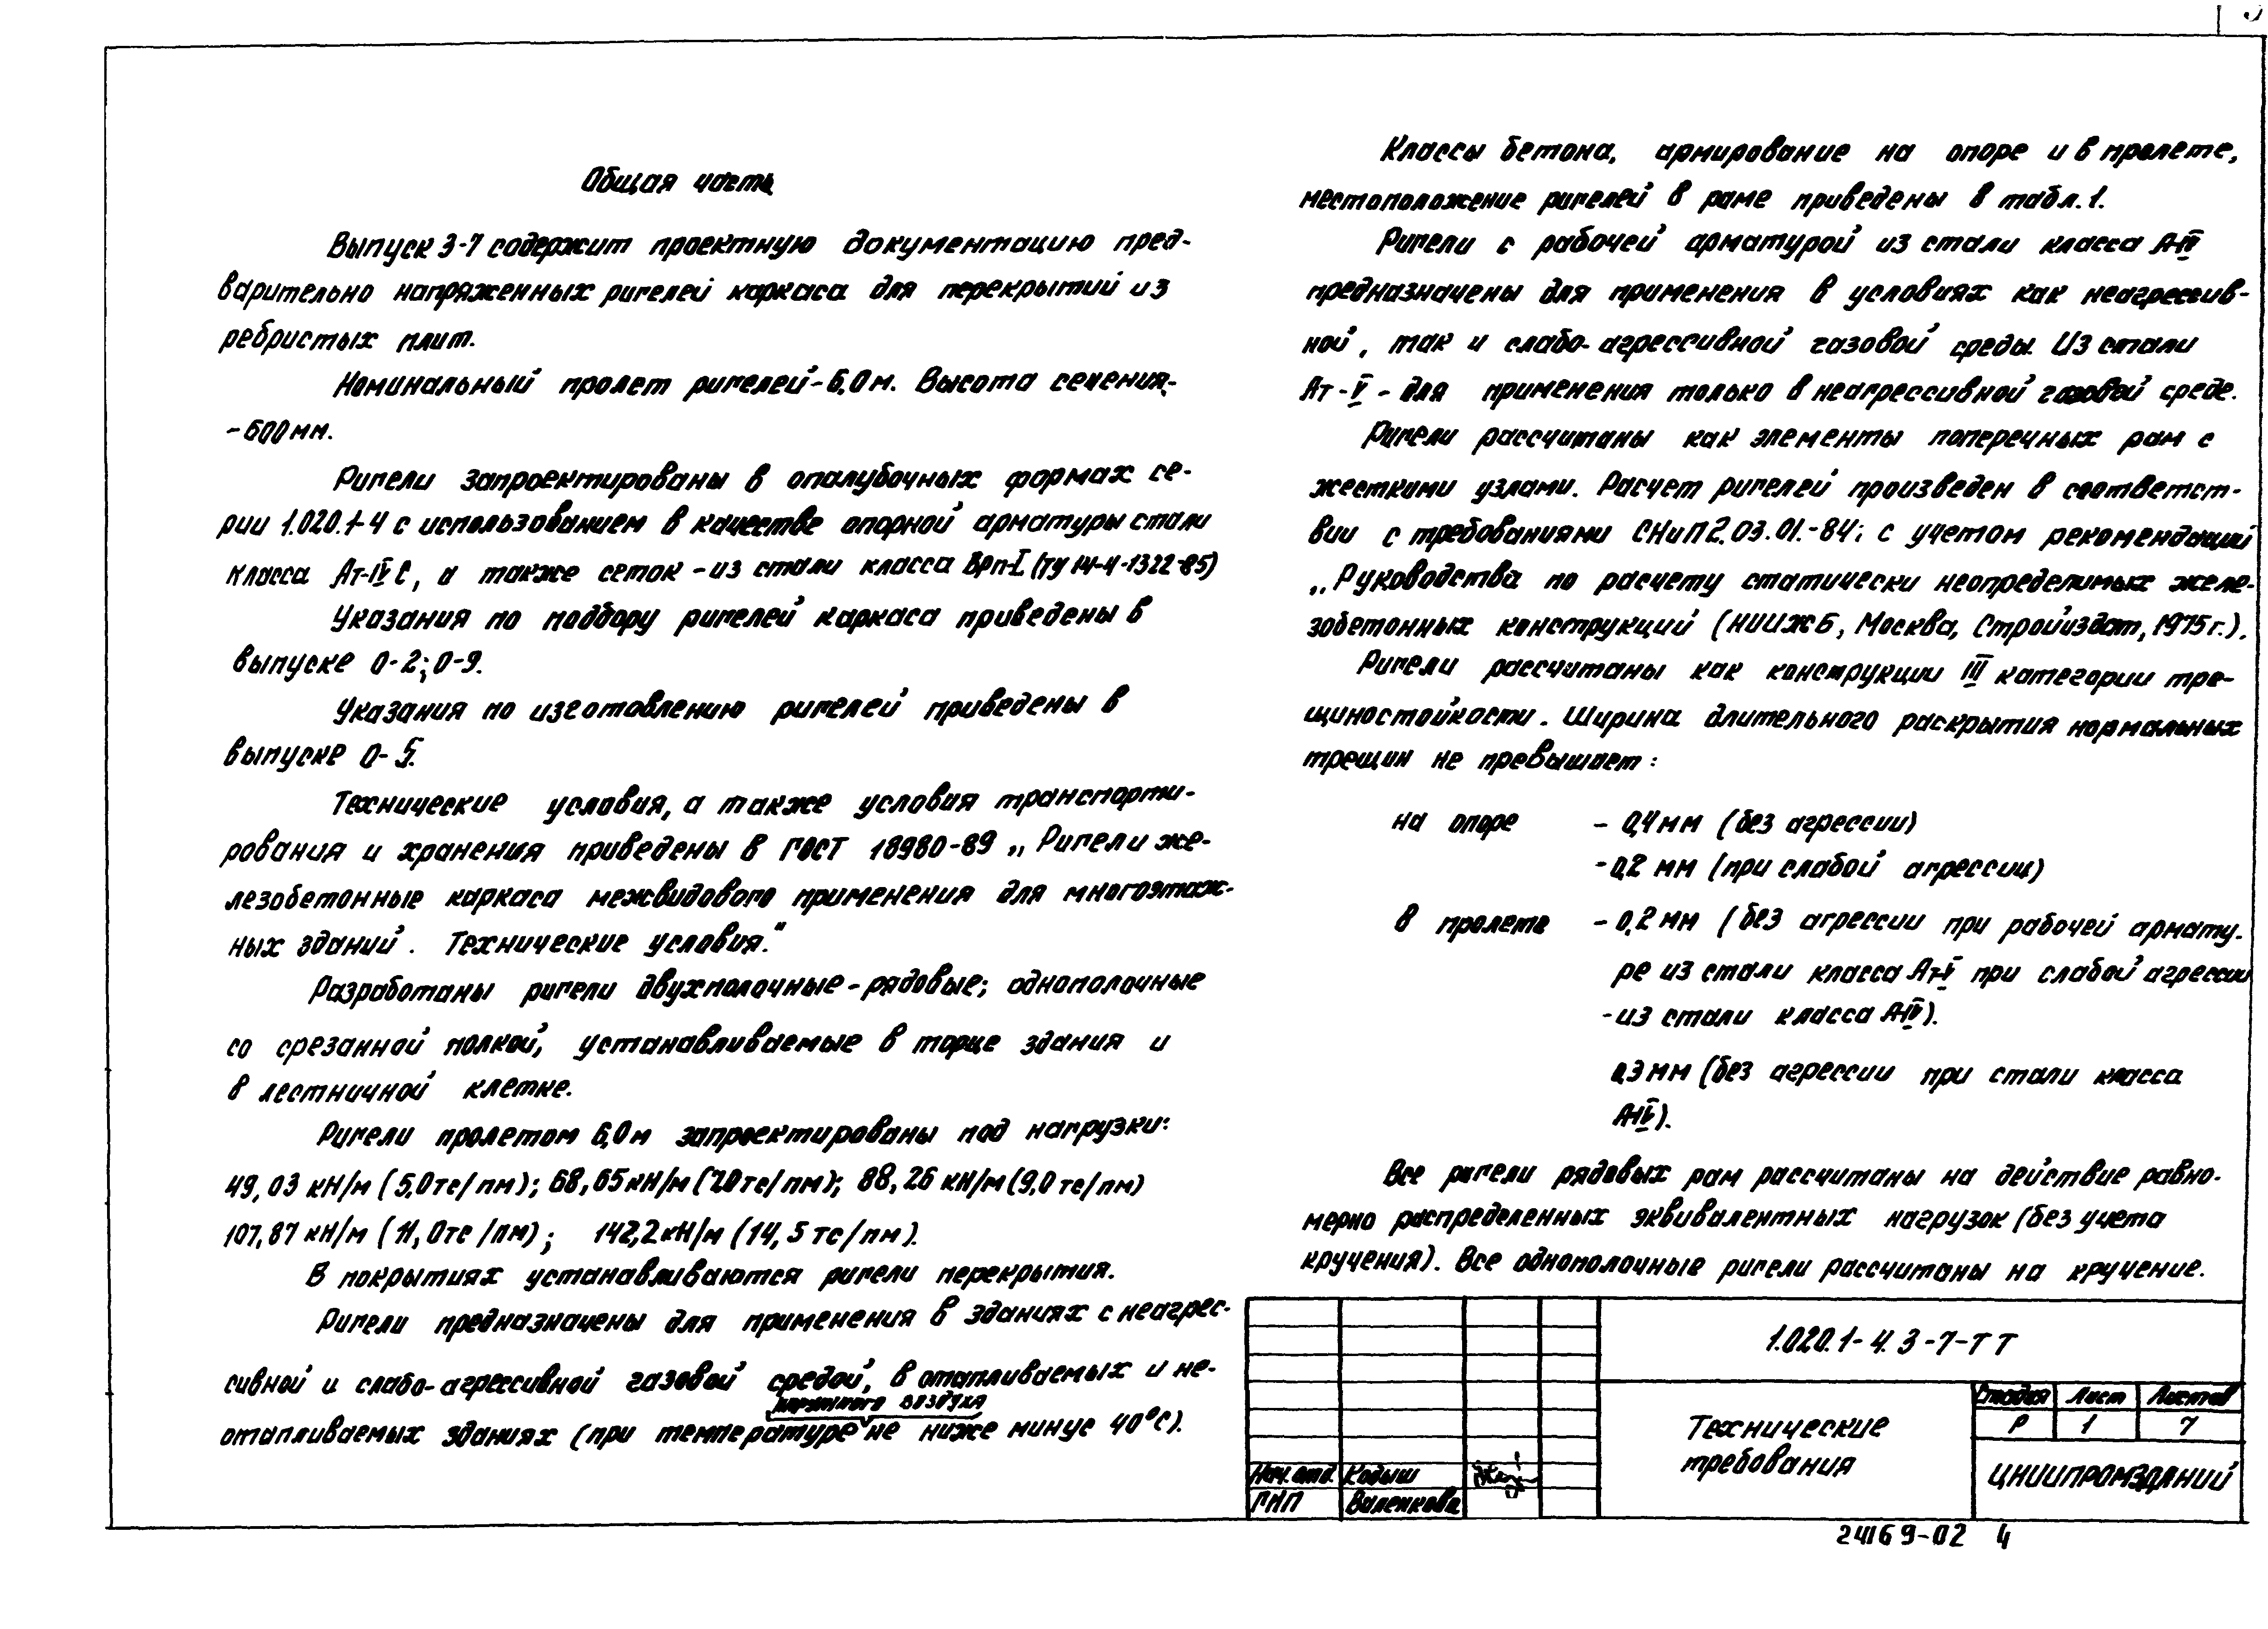 Общая часть
Выпуск 3-7 содержит проектную документацию пред-
варительно напряженных ригелей каркаса для перекрытий из
ребристых плит.
Номинальный пролет ригелей-6,0м. Высота сечения-
-600мм.
Ригели запроектированы в опалубочных формах се-
рии 1.020.1-4 с использованием в качестве опорной арматуры стали
класса Ат-IVС, а также сеток -из стали класса Врп-I (ТУ 14-4-1322-85)
Указания по подбору ригелей каркаса приведены в
выпуске 0-2; 0-9.
Указания по изготовлению ригелей приведены в
выпуске 0-5.
Технические условия, а также условия транспорти-
рования и хранения приведены в ГОСТ 18980-89 „Ригели же-
лезобетонные каркаса межвидового применения для многоэтаж-
ных зданий. Технические условия."
Разработаны ригели двухполочные-рядовые; однополочные
со срезанной полкой, устанавливаемые в торце здания и
в лестничной клетке.
Ригели пролетом 6,0м запроектированы под нагрузки:
49,03 кН/м (5,0тс/пм); 68,65кН/м (7,0тс/пм); 88,26 кН/м (9,0 тс/пм)
107,87 кН/м (11,0тс/пм); 142,2кН/м (14,5 тс/пм).
В покрытиях устанавливаются ригели перекрытия.
Ригели предназначены для применения в зданиях с неагрес-
сивной и слабо-агрессивной газовой средой, в отапливаемых и не-
наружного воздуха
отапливаемых зданиях (при температуре не ниже минус 40°С).
Классы бетона, армирование на опоре и в пролете,
местоположение ригелей в раме приведены в табл.1.
Ригели с рабочей арматурой из стали класса А-IV
предназначены для применения в условиях как неагрессив-
ной, так и слабо-агрессивной газовой среды. Из стали
Ат-V - для применения только в неагрессивной газовой среде.
Ригели рассчитаны как элементы поперечных рам с
жесткими узлами. Расчет ригелей произведен в соответст-
вии с требованиями СНиП 2.03.01.-84; с учетом рекомендаций
„Руководства по расчету статически неопределимых желе-
зобетонных конструкций (НИИЖБ, Москва, Стройиздат, 1975г.).
Ригели рассчитаны как конструкции III категории тре-
щиностойкости. Ширина длительного раскрытия нормальных
трещин не превышает:
на опоре - 0,4мм (без агрессии)
-0,2 мм (при слабой агрессии)
в пролете - 0,2мм (без агрессии при рабочей армату-
ре из стали класса Ат-V при слабой агрессии
-из стали класса А-IV).
0,3мм (без агрессии при стали класса
А-IV).
Все ригели рядовых рам рассчитаны на действие равно-
мерно распределенных эквивалентных нагрузок (без учета
кручения). Все однополочные ригели рассчитаны на кручение.
1.020.1-4. 3-7-ТТ
Технические
требования
Стадия Лист Листов
Р 1 7
ЦНИИПРОМЗДАНИЙ
Нач.отд. Кодыш
ГИП Валенкова
24169-02 4